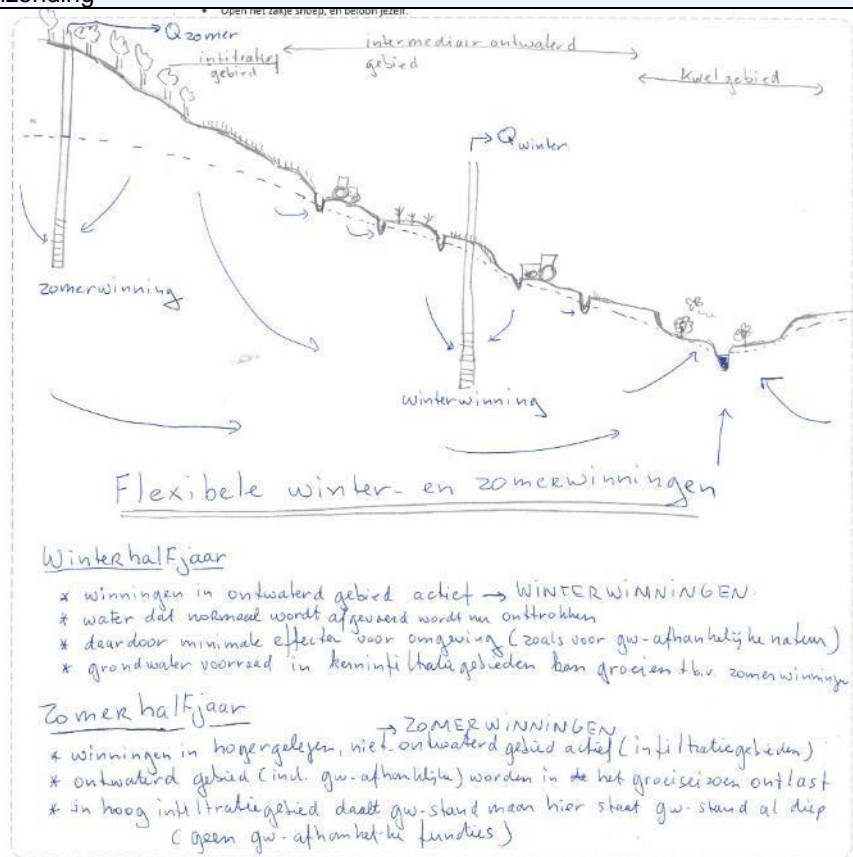 inzending
• Open het zakje snoep, en beloon jezelf.
Qzomer
infiltratie gebied
intermediair ontwaterd gebied
kwelgebied
Qwinter
zomerwinning
winterwinning
Flexibele winter- en zomerwinningen
Winterhalfjaar
* winningen in ontwaterd gebied actief → WINTERWINNINGEN.
* water dat normaal wordt afgevoerd wordt nu onttrokken
* daardoor minimale effecten voor omgeving (zoals voor gw-afhankelijke natuur)
* grondwater voorraad in keininfiltratiegebieden kan groeien t.b.v. zomerwinningen
Zomerhalfjaar
→ ZOMERWINNINGEN
* winningen in hogergelegen, niet ontwaterd gebied actief (infiltratiegebieden)
* ontwaterd gebied (incl. gw-afhankelijke) worden in het groeiseizoen ontlast
* in hoog infiltratiegebied daalt gw-stand maar hier staat gw-stand al diep
(geen gw-afhankelijke functies)